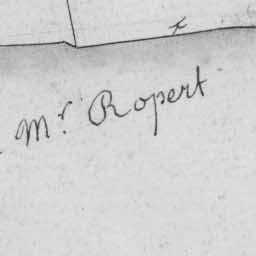 Mr. Ropert